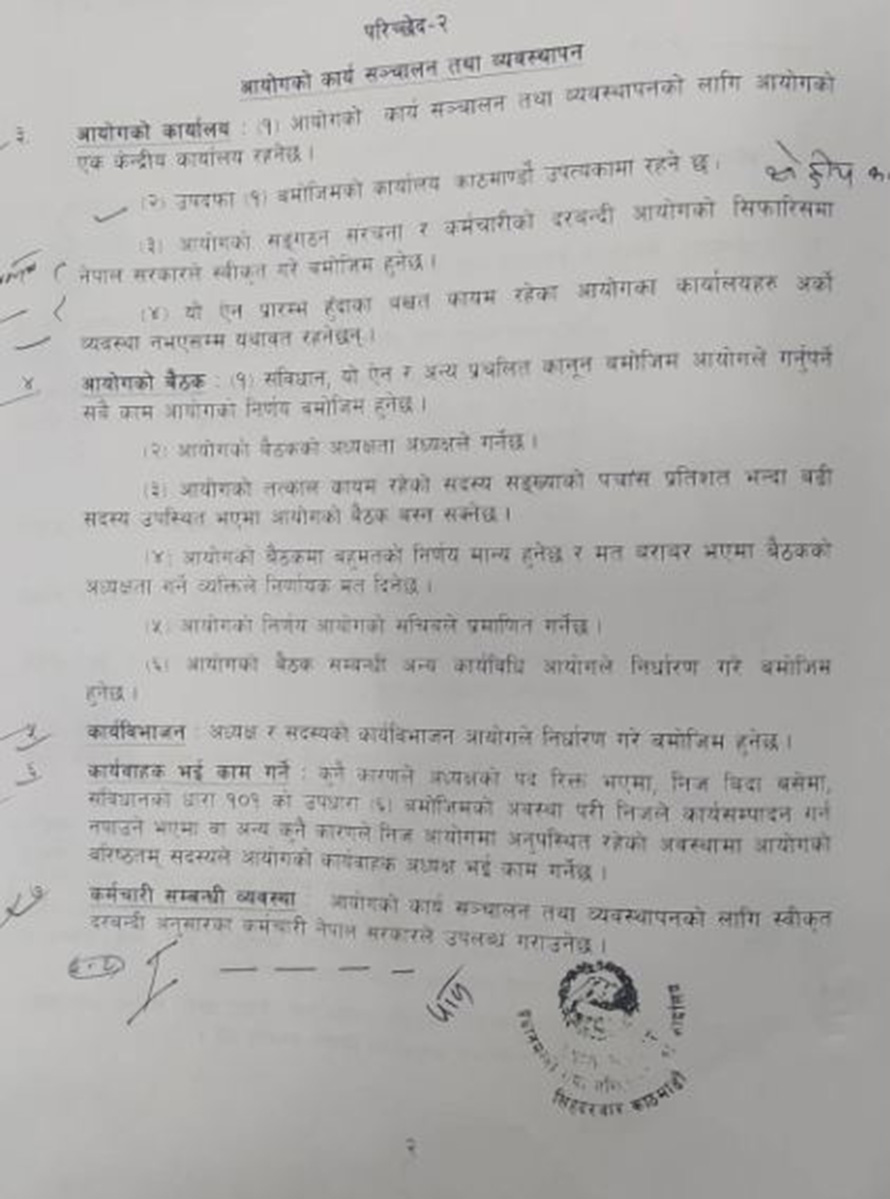 परिच्छेद-२
आयोगको कार्य सञ्चालन तथा व्यवस्थापन
३. आयोगको कार्यालय : (१) आयोगको कार्य सञ्चालन तथा व्यवस्थापनको लागि आयोगको
एक केन्द्रीय कार्यालय रहनेछ ।
(२) उपदफा (१) बमोजिमको कार्यालय काठमाण्डौ उपत्यकामा रहने छ ।
(३) आयोगको सङ्गठन संरचना र कर्मचारीको दरबन्दी आयोगको सिफारिसमा
नेपाल सरकारले स्वीकृत गरे बमोजिम हुनेछ ।
(४) यो ऐन प्रारम्भ हुँदाका बखत कायम रहेका आयोगका कार्यालयहरु अर्को
व्यवस्था नभएसम्म यथावत रहनेछन् ।
४ आयोगको बैठक : (१) संविधान, यो ऐन र अन्य प्रचलित कानून बमोजिम आयोगले गर्नुपर्ने
सबै काम आयोगको निर्णय बमोजिम हुनेछ ।
(२) आयोगको बैठकको अध्यक्षता अध्यक्षले गर्नेछ ।
(३) आयोगको तत्काल कायम रहेको सदस्य सङ्ख्याको पचास प्रतिशत भन्दा बढी
सदस्य उपस्थित भएमा आयोगको बैठक बस्न सक्नेछ ।
(४) आयोगको बैठकमा बहुमतको निर्णय मान्य हुनेछ र मत बराबर भएमा बैठकको
अध्यक्षता गर्ने व्यक्तिले निर्णायक मत दिनेछ ।
(५) आयोगको निर्णय आयोगको सचिवले प्रमाणित गर्नेछ ।
(६) आयोगको बैठक सम्बन्धी अन्य कार्यविधि आयोगले निर्धारण गरे बमोजिम
हुनेछ ।
५ कार्यविभाजन : अध्यक्ष र सदस्यको कार्यविभाजन आयोगले निर्धारण गरे बमोजिम हुनेछ ।
६ कार्यवाहक भई काम गर्ने : कुनै कारणले अध्यक्षको पद रिक्त भएमा, निज बिदा बसेमा,
संविधानको धारा १०१ को उपधारा (६) बमोजिमको अवस्था परी निजले कार्यसम्पादन गर्न
नपाउने भएमा वा अन्य कुनै कारणले निज आयोगमा अनुपस्थित रहेको अवस्थामा आयोगको
वरिष्ठतम् सदस्यले आयोगको कार्यवाहक अध्यक्ष भई काम गर्नेछ ।
७ कर्मचारी सम्बन्धी व्यवस्था : आयोगको कार्य सञ्चालन तथा व्यवस्थापनको लागि स्वीकृत
दरबन्दी अनुसारका कर्मचारी नेपाल सरकारले उपलब्ध गराउनेछ ।
सिंहदरबार काठमाडौं
२